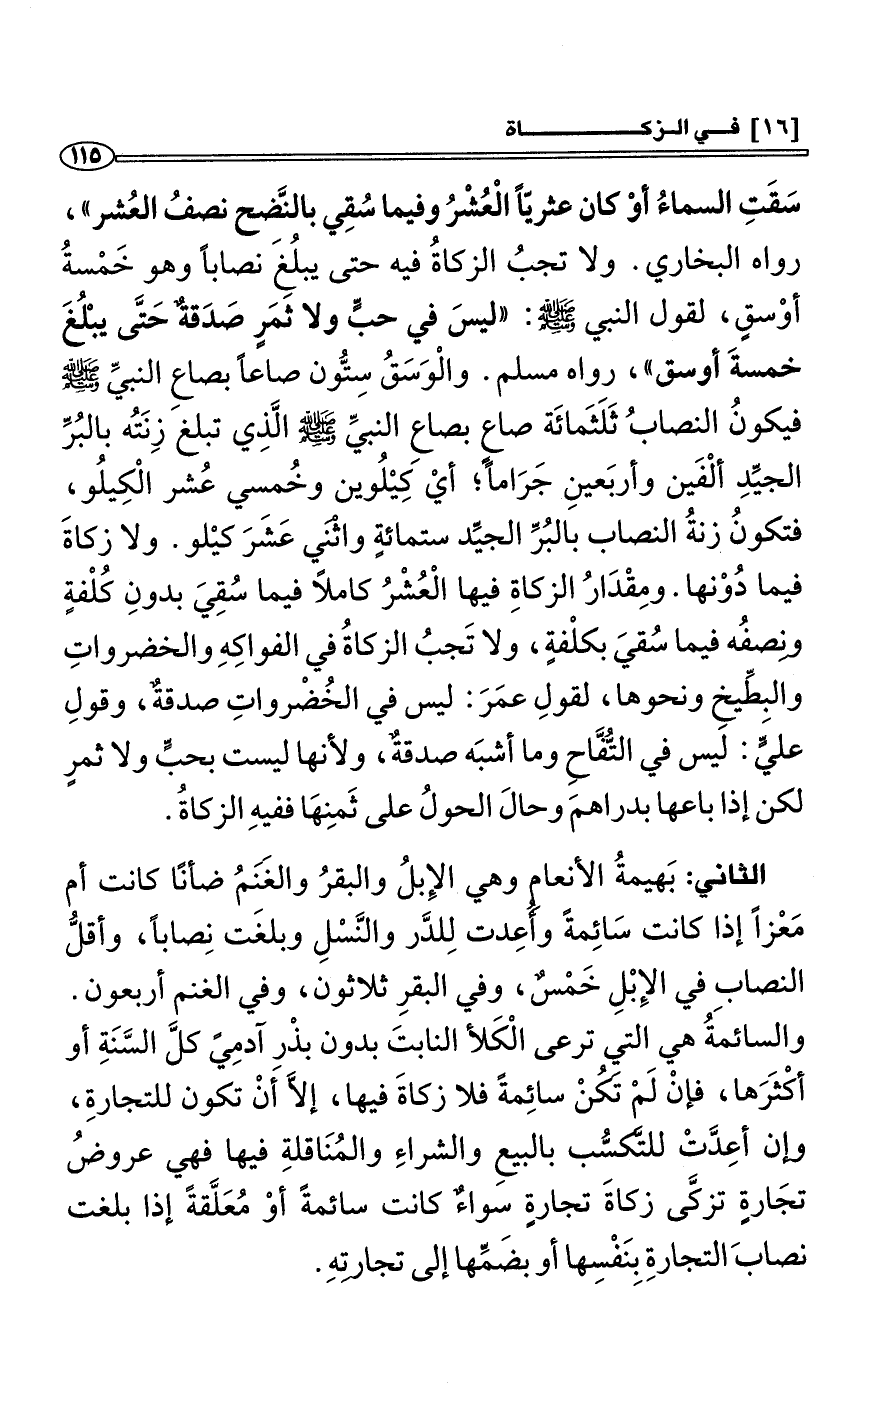 [١٦] فـــي الــزكـــــــــــــاة
١١٥
سَقَتِ السماءُ أوْ كان عثريّاً الْعُشْرُ وفيما سُقِي بالنَّضح نصفُ العُشر»،
رواه البخاري. ولا تجبُ الزكاةُ فيه حتى يبلُغَ نصاباً وهو خَمْسةُ
أوْسقٍ، لقول النبي ﷺ: «ليسَ في حبٍّ ولا ثَمَرٍ صَدَقةٌ حَتَّى يبْلُغَ
خمسةَ أوسق»، رواه مسلم. والْوَسَقُ سِتُّون صاعاً بصاعِ النبيِّ ﷺ
فيكونُ النصابُ ثَلَثمائَة صاعٍ بصاعِ النبيِّ ﷺ الَّذِي تبلغَ زِنَتُه بالبُرِّ
الجيِّدِ ألْفَين وأربَعينِ جَرَاماً؛ أيْ كِيْلُوين وخُمسي عُشر الْكِيلُو،
فتكونُ زنةُ النصاب بالبُرِّ الجيِّد ستمائةٍ واثْنَي عَشَرَ كيْلو. ولا زكاةَ
فيما دُوْنها. ومِقْدَارُ الزكاةِ فيها الْعُشْرُ كاملاً فيما سُقِيَ بدونِ كُلْفةٍ
ونِصفُه فيما سُقيَ بكلْفةٍ، ولا تَجبُ الزكاةُ في الفواكِهِ والخضرواتِ
والبِطِّيخِ ونحوها، لقولِ عمَرَ: ليس في الخُضْرواتِ صدقةٌ، وقولِ
عليٍّ: لَيس في التُّفَّاحِ وما أشبَه صدقةٌ، ولأنها ليست بحبٍّ ولا ثمرٍ
لكن إذا باعها بدراهمَ وحالَ الحولُ على ثَمنِهَا ففيهِ الزكاةُ.
الثاني: بَهيمةُ الأنعامِ وهي الإِبلُ والبقرُ والغَنَمُ ضأنًا كانت أم
مَعْزاً إذا كانت سَائِمةً وأُعِدت لِلدَّر والنَّسْلِ وبلغَت نِصاباً، وأقلُّ
النصابِ في الإِبْلِ خَمْسٌ، وفي البقرِ ثلاثون، وفي الغنم أربعون.
والسائمةُ هي التي ترعى الْكَلأ النابتَ بدون بذْرِ آدمِيّ كلَّ السَّنَةِ أو
أكْثَرَها، فإنْ لَمْ تَكُنْ سائِمةً فلا زكاةَ فيها، إلاَّ أنْ تكون للتجارةِ،
وإن أعِدَّتْ للتَّكسُّب بالبيعِ والشراءِ والمُنَاقلةِ فيها فهي عروضُ
تجَارةٍ تزكَّى زكاةَ تجارةٍ سَواءٌ كانت سائمةً أوْ مُعَلَّفةً إذا بلغت
نصابَ التجارةِ بِنَفْسِها أو بضَمِّها إلى تجارتِهِ.